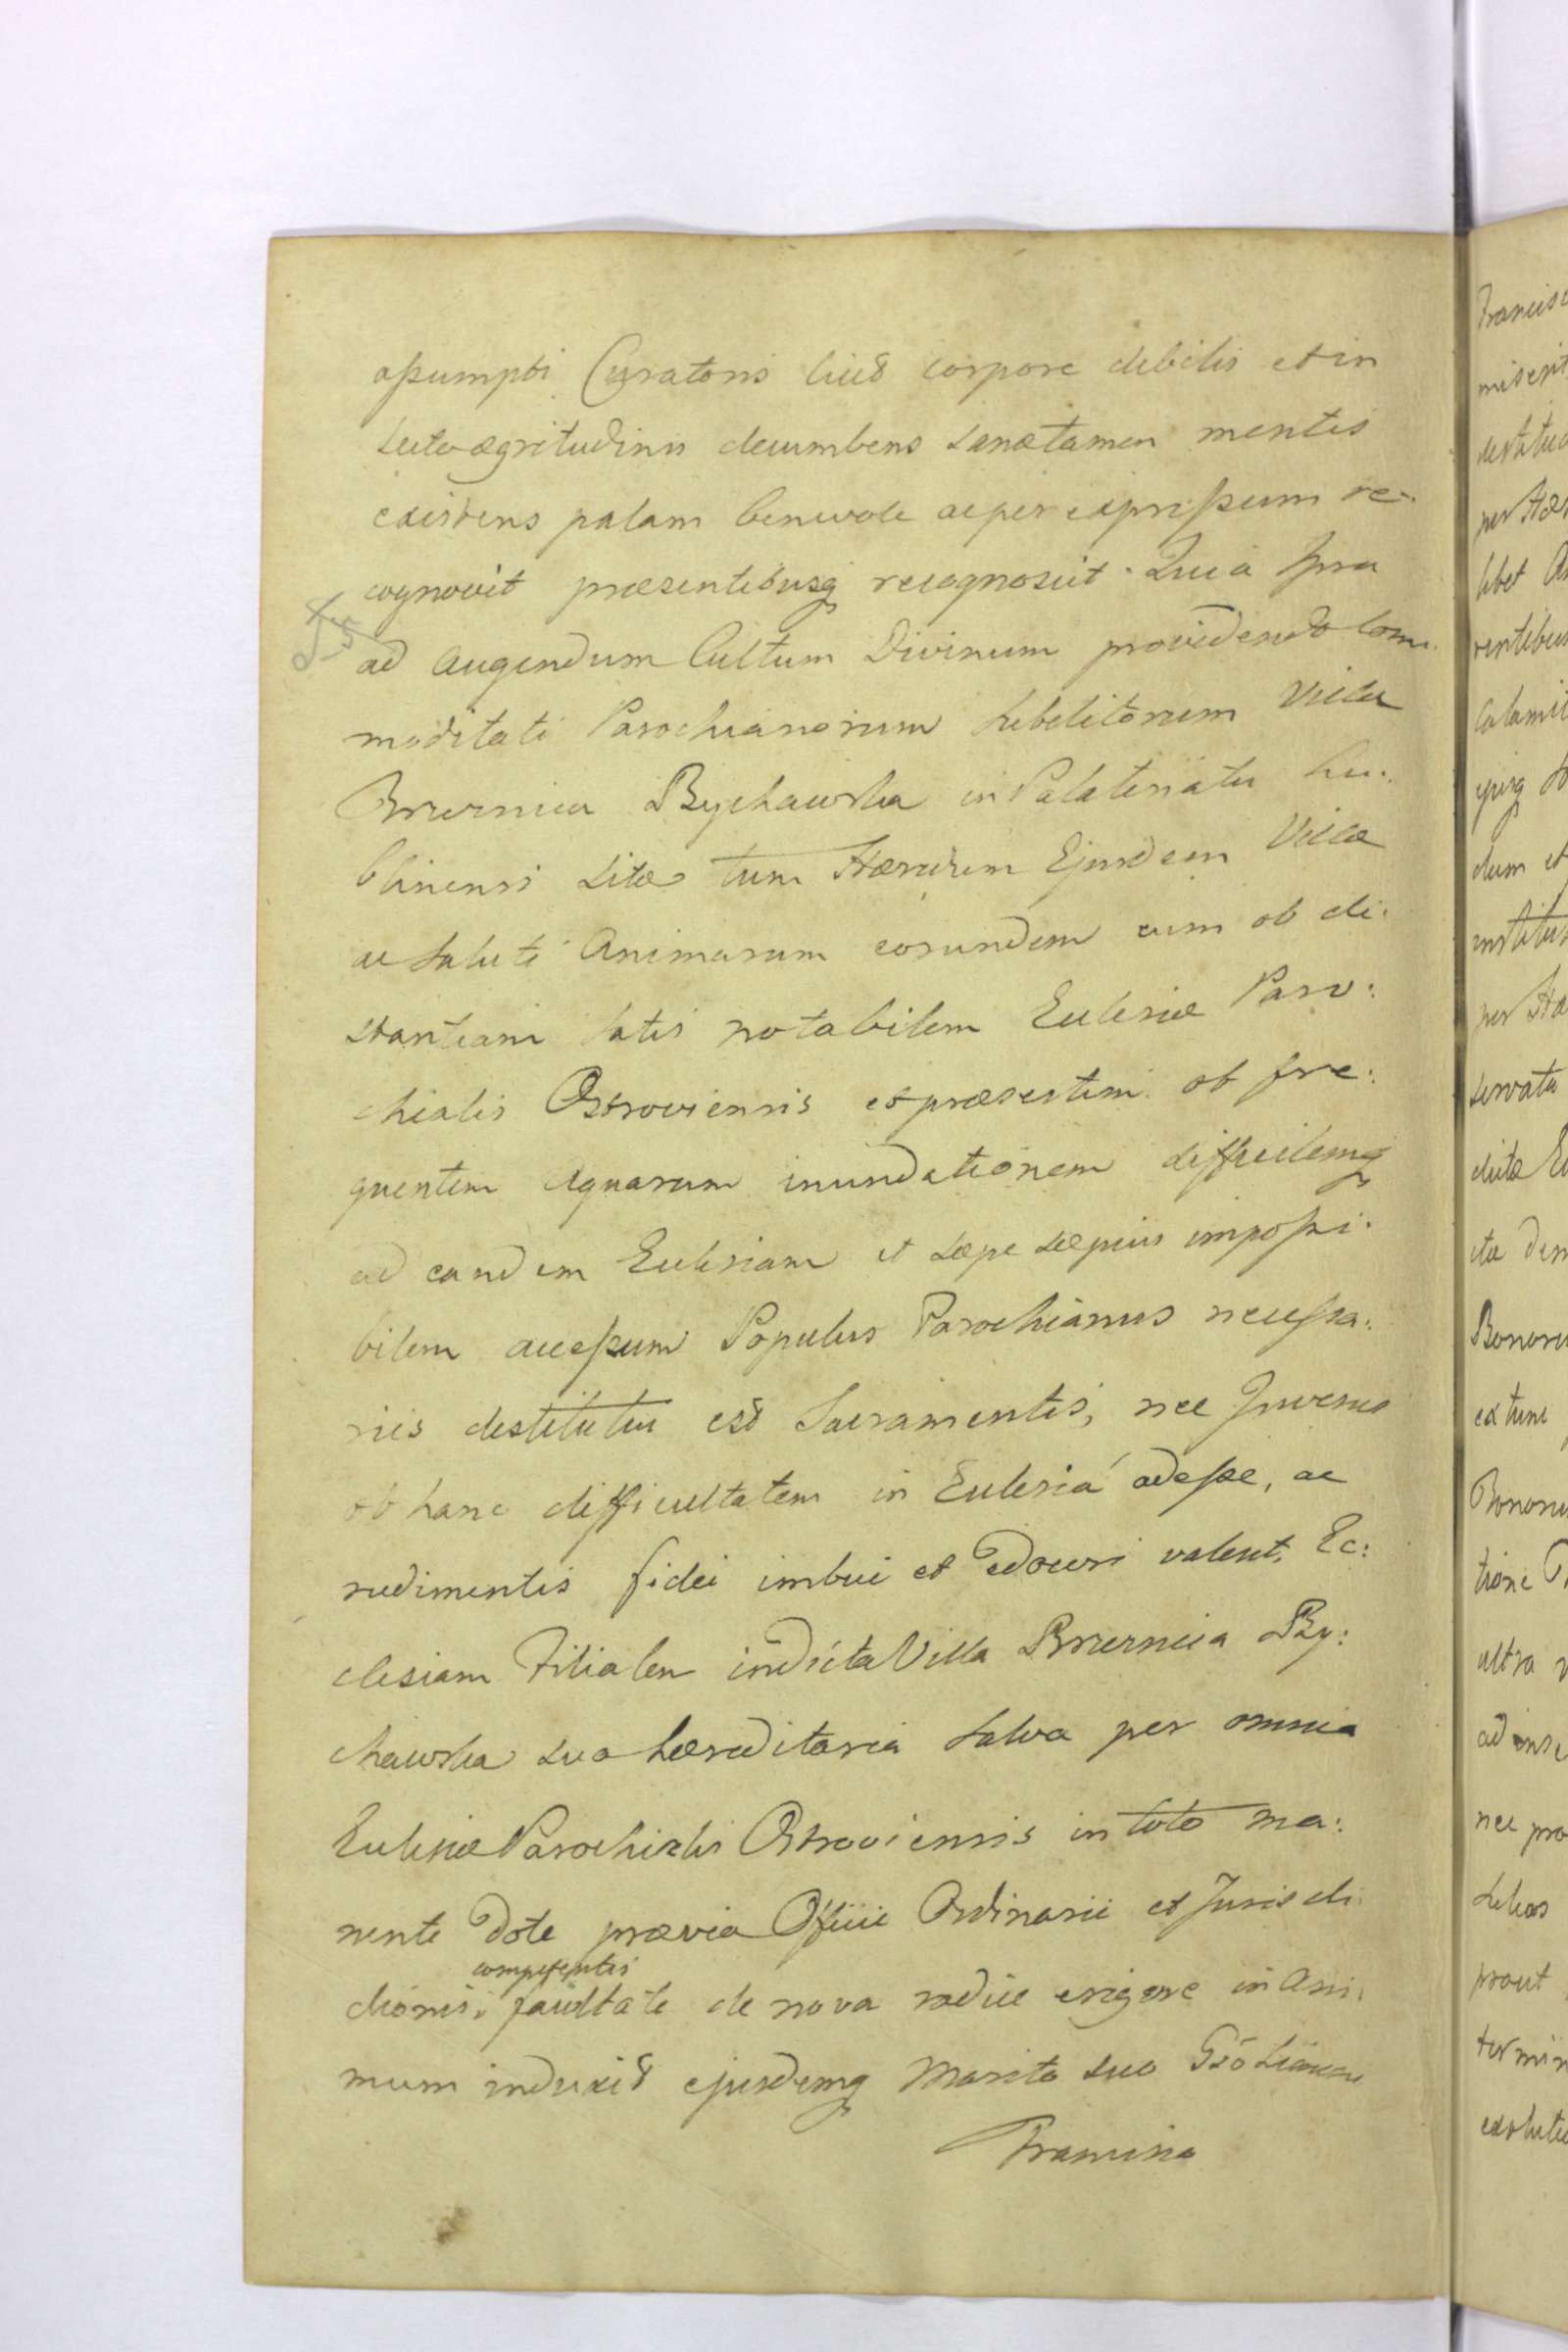 assumpti Curatoris licet corpore debilis et in
lecto ægritudinis decumbens sanætamen mentis
existens palam benevole ac per expressum re-
cognovit præsentibusq recognoscit. Quia Ipsa
ad augendum Cultum Divinum providendo Com.
moditati Parochianorum subditorum Villæ
Bychawska in Palatinatu Lu:
blinensi sitæ tum Hæredum Ejusdem Villæ
ac Saluti Animarum eorundem cum ob di:
stantiam satis notabilem Eclesiæ Paro:
chialis Ostroviensis et præsertim ob fre:
quentem Aquarum inundationem difficilemq
ad eandem Eclesiam et sæpe sæpius impossi:
bilem accessum Populus Parochianus necessa:
riis destitutus est Sacramentis, nec Juvenes
ob hanc difficultatem in Eclesiá adesse, ac
rudimentis fidei imbui et edoceri valent, Ec:
clesiam Filialem in dicta Villa By:
chawska sua hæreditaria salva per omnia
Eclesiæ Parochialis Ostroviensis in toto ma:
nente Dote prævia Officii Ordinarii et Jurisdi
competentis
ctionis facultate de nova radice erigere in Ani:
mum induxit ejusdemq Marito suo Gso
Francisco
Francisc
miserit
per Hær
libet
rentibus
Calamit
dum et
per Hæ
servata
dictæ
ita
Bonoru
ex tunc
Bonoru
tione
ultra
ad
nec pro
prout
termin